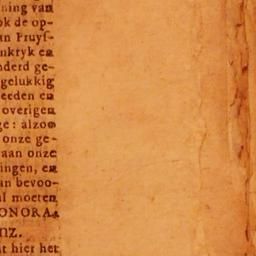 ning van
ok de op-
an Pruyf-
nkryk en
nderd ge-
gelukkig
eeden en
overigen
ge: alzoo
onze ge-
aan onze
ingen, en
an bevoo-
al moeten
ONORA.
nz.
t hier het